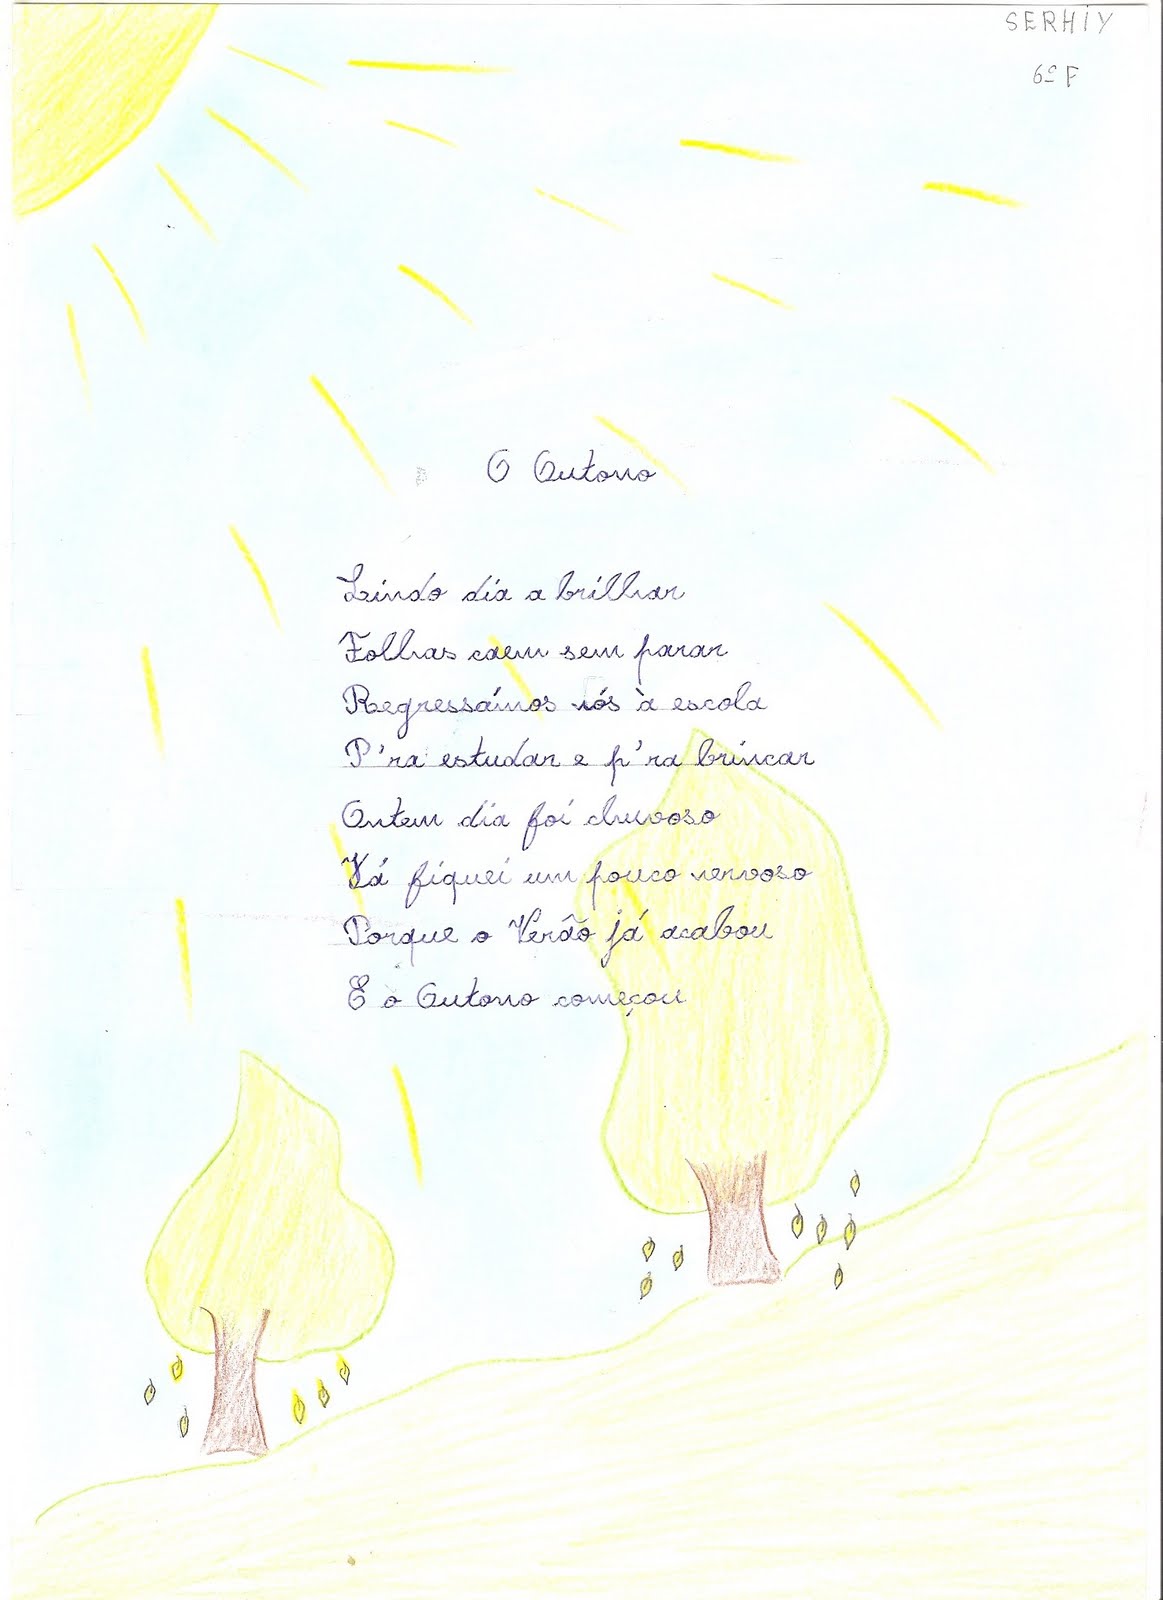 SERHIY
6º F
O Outono
Lindo dia a brilhar
Folhas caem sem parar
Regressámos nós à escola
P'ra estudar e p'ra brincar
Ontem dia foi chuvoso
Já fiquei um pouco nervoso
Porque o Verão já acabou
E o Outono começou